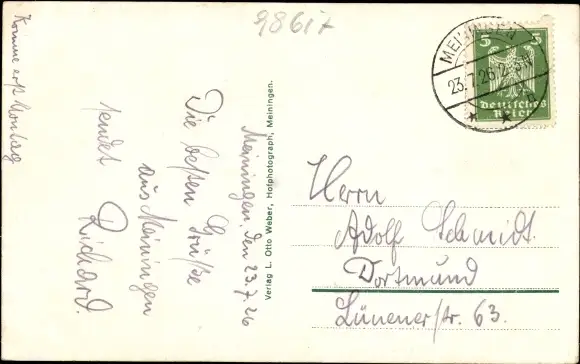 98617
Komme erst Montag
Meiningen, den 23.7.26
Die besten Grüße
aus Meiningen
sendet
Richard.
Verlag L. Otto Weber, Hofphotograph, Meiningen.
MEININGEN
23.7.26
5 5
Deutsches
Reich
Herrn
Adolf Schmidt.
Dortmund
Lünenerstr. 63.